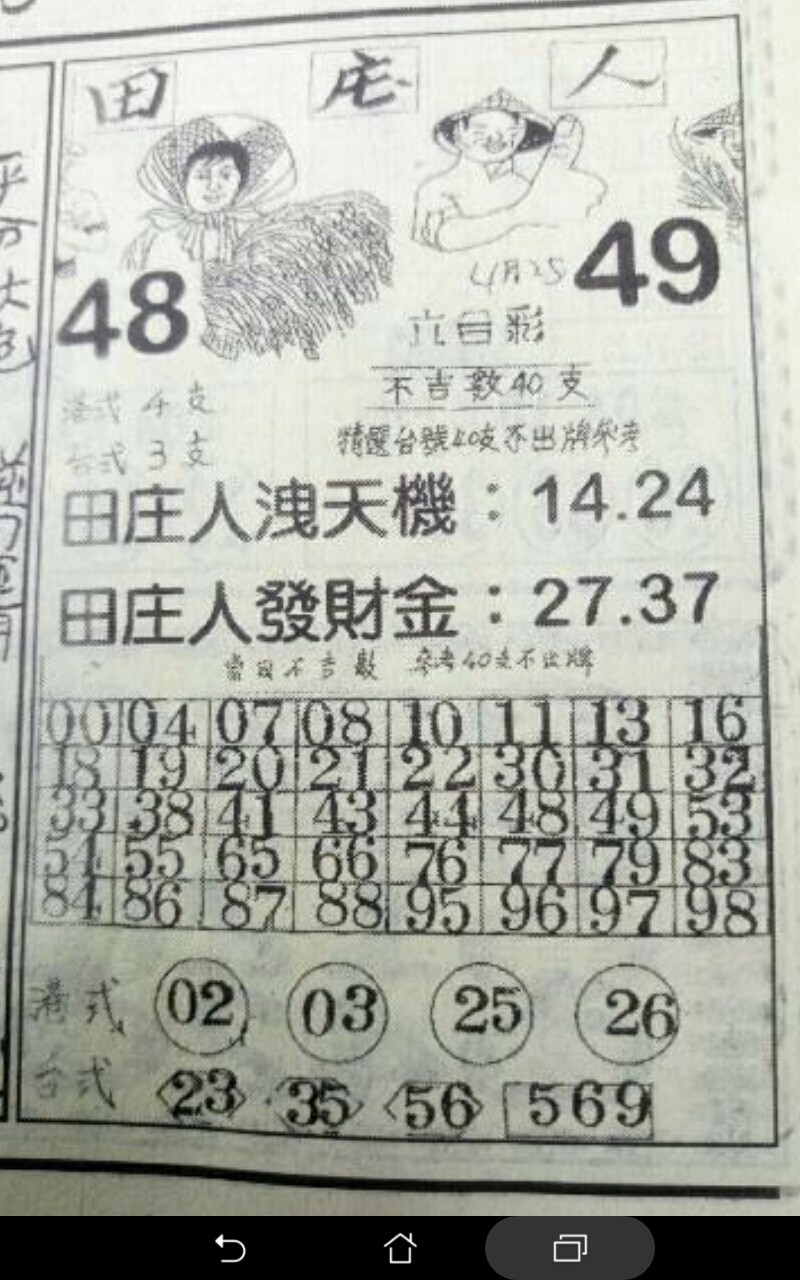 田 庄 人
48
4月25
49
六合彩
不吉數40支
港式 4支
台式 3支
精選台號40支不出牌參考
田庄人洩天機：14.24
田庄人發財金：27.37
當日不吉數 參考40支不出牌
00 04 07 08 10 11 13 16
18 19 20 21 22 30 31 32
33 38 41 43 44 48 49 53
54 55 65 66 76 77 79 83
84 86 87 88 95 96 97 98
港式 02 03 25 26
台式 23 35 56 569